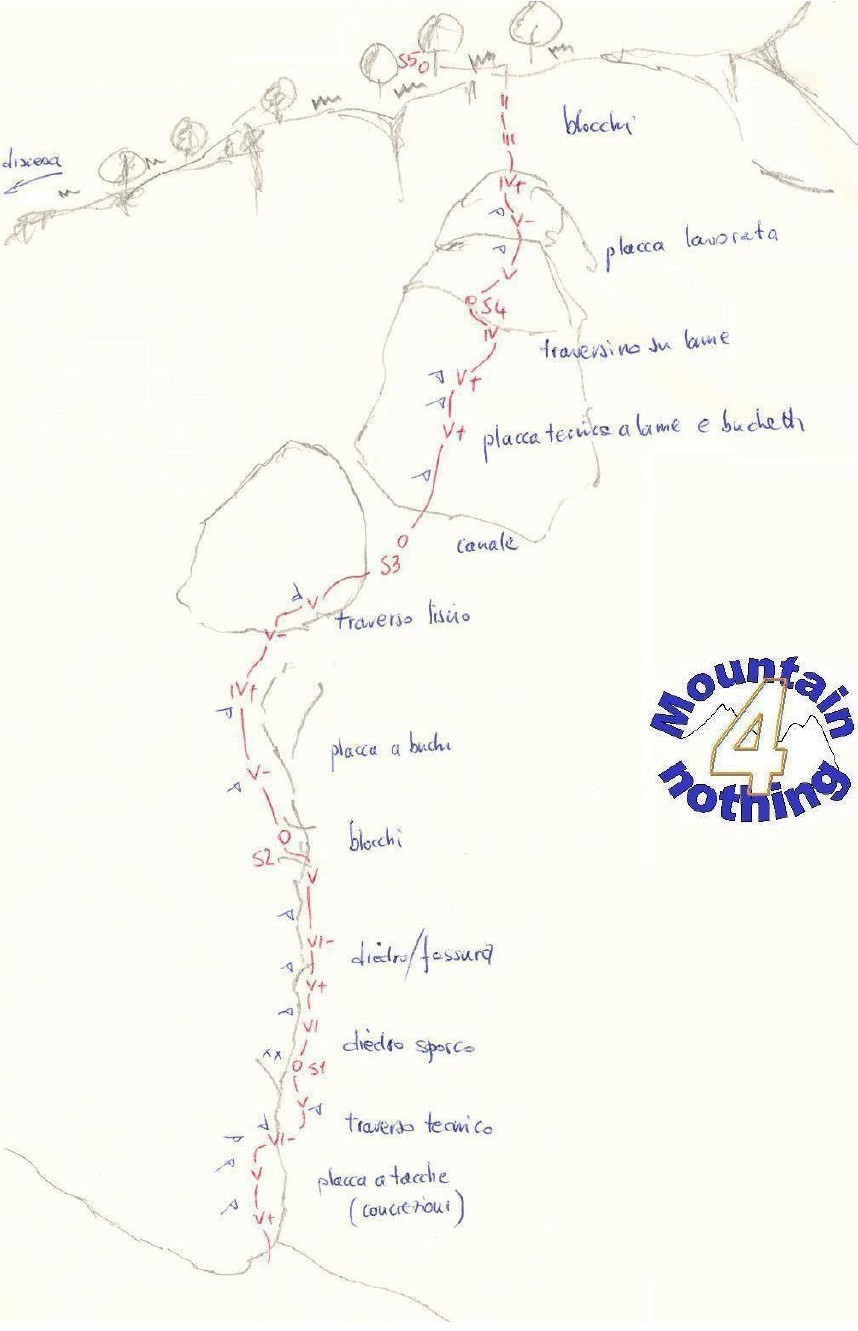 S5
II
blocchi
III
discesa
IV+
V-
placca lavorata
V
S4
IV
traversino su lame
V+
V+
placca tecnica a lame e buchetti
canale
S3
V
traverso liscio
V-
IV+
placca a buchi
V-
Mountain
4
nothing
blocchi
S2
V
VI-
diedro/fessura
V+
VI
diedro sporco
xx
S1
V
traverso tecnico
VI-
V
placca a tacche
(concrezioni)
V+